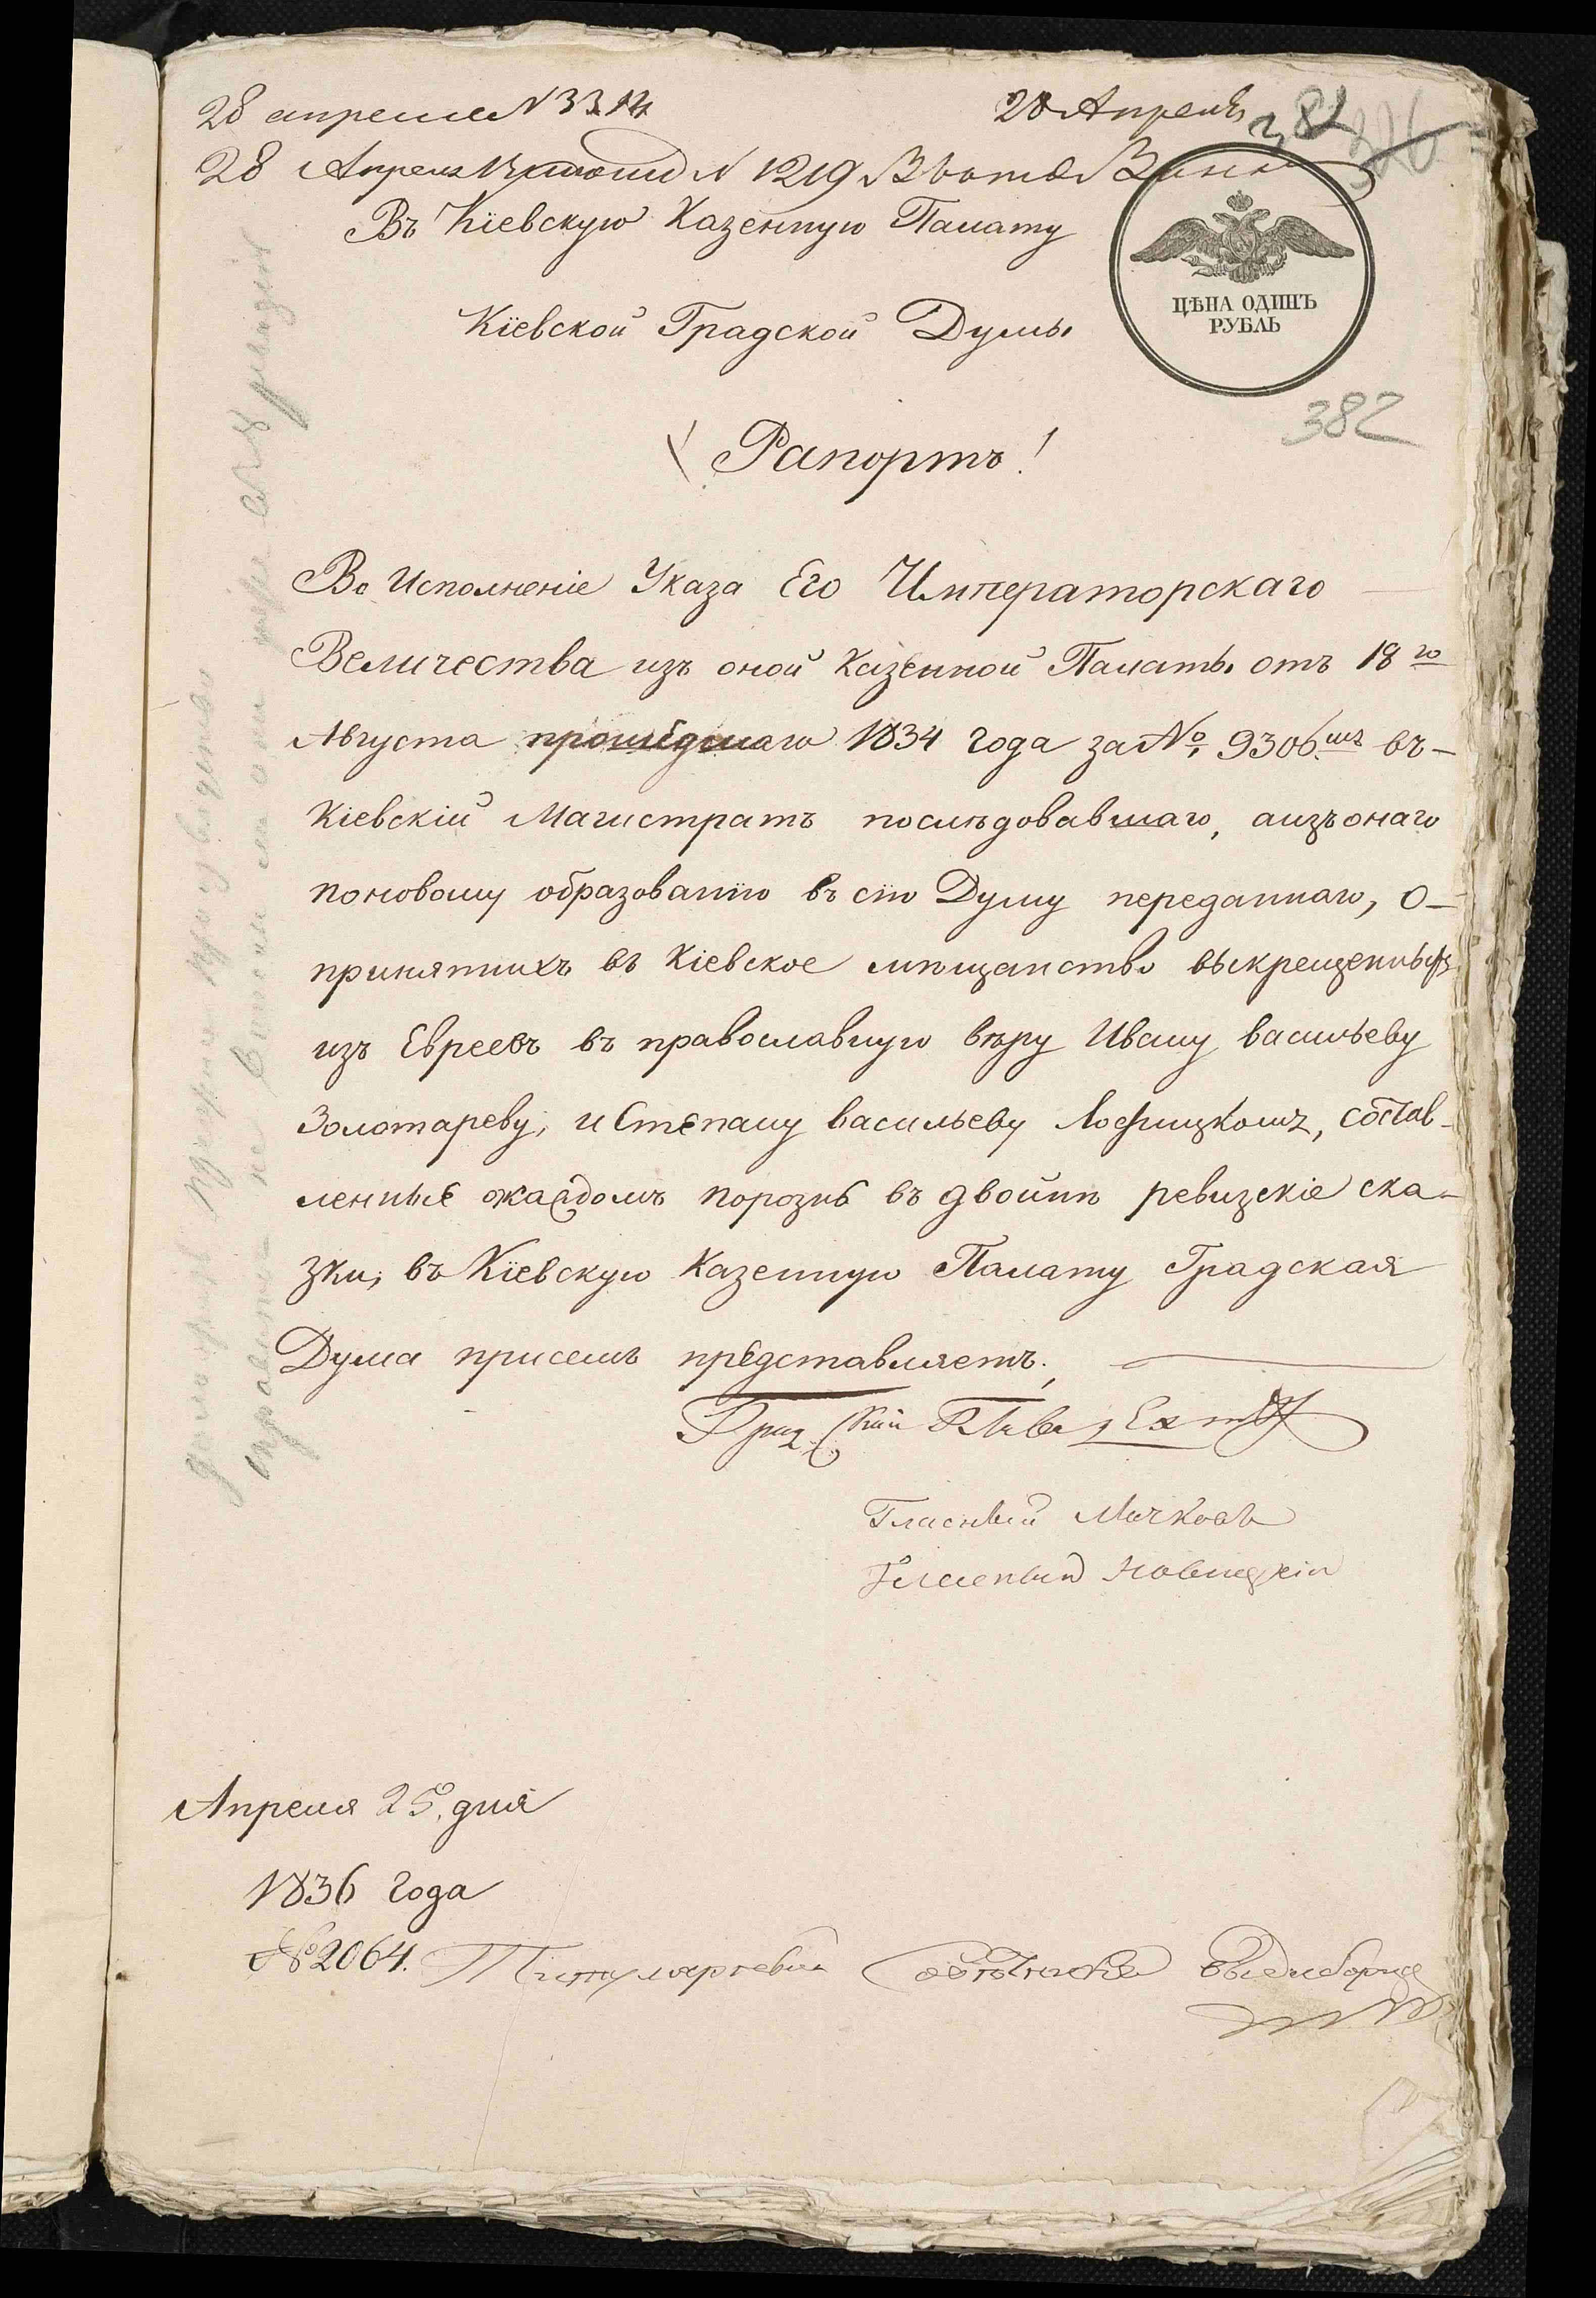 28 апреля N 3314
28 Апреля
382
28 Апреля N 1219
Въ Кіевскую Казенную Палату
ЦѢНА ОДИНЪ
РУБЛЬ
Кіевской Градской Думы
382
Рапортъ!
Во Исполненіе Указа Его Императорскаго
Величества изъ оной Казенной Палаты отъ 18го
Августа прошедшаго 1834 года за №. 9306.мъ въ-
Кіевскій Магистратъ послѣдовавшаго, аизъонаго
поновому образованію въ сію Думу переданнаго, о-
принятихъ въ Кіевское мѣщанство выкрещенныхъ
изъ Евреевъ въ православную вѣру Ивану васильеву
Золотареву, и Степану васильеву Лофицкомъ, состав-
ленные окаждомъ порознь въ двойнѣ ревизскіе ска-
зки, въ Кіевскую Казенную Палату Градская
Дума присемъ представляетъ.
Град Скій Глава
Гласный Мачковъ
Гласный Новицкій
Апреля 25. дня
1836 года
№ 2064.